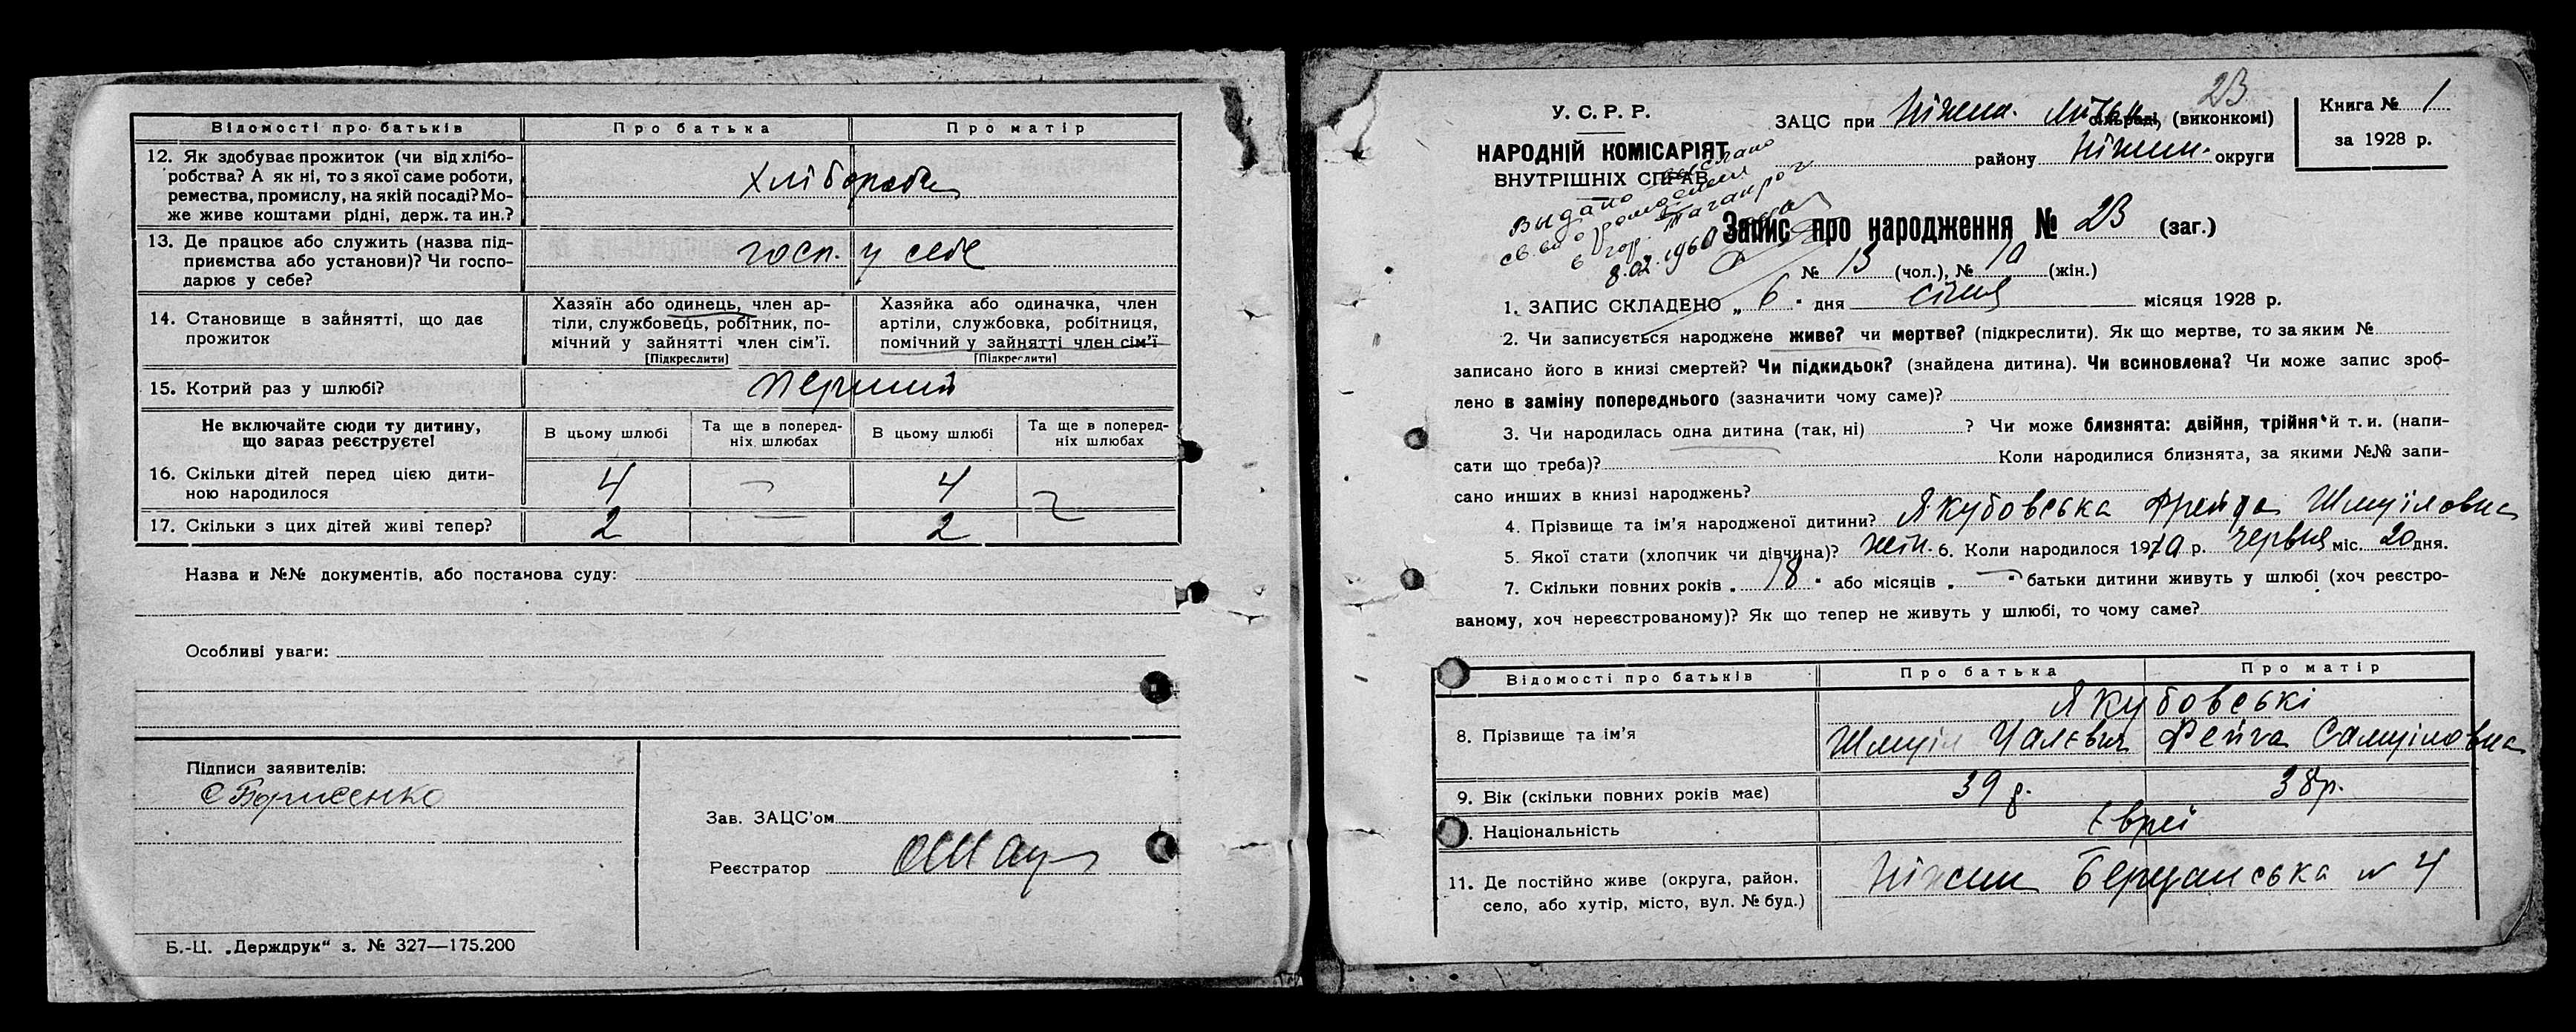 Відомості про батьків Про батька Про матір
12. Як здобуває прожиток (чи від хлібо-
робства? А як ні, то з якої саме роботи,
ремества, промислу, на якій посаді? Мо-
же живе коштами рідні, держ. та ин.?
хлібороби
13. Де працює або служить (назва під-
приємства або установи)? Чи госпо-
дарює у себе?
госп. у себе
14. Становище в зайнятті, що дає
прожиток
Хазяїн або одинець, член ар-
тіли, службовець, робітник, по-
мічний у зайнятті член сім'ї.
[Підкреслити]
Хазяйка або одиначка, член
артіли, службовка, робітниця,
помічний у зайнятті член сім'ї
[Підкреслити]
15. Котрий раз у шлюбі? перший
Не включайте сюди ту дитину,
що зараз реєструєте!
В цьому шлюбі
Та ще в поперед-
ніх шлюбах
В цьому шлюбі
Та ще в поперед-
ніх шлюбах
16. Скільки дітей перед цією дити-
ною народилося
4 — 4
17. Скільки з цих дітей живі тепер? 2 — 2
Назва и №№ документів, або постанова суду:
Особливі уваги:
Підписи заявителів:
Зав. ЗАЦС'ом
Реєстратор
Б.-Ц. „Держдрук“ з. № 327—175.200
23
У. С. Р. Р.
НАРОДНІЙ КОМІСАРІЯТ
ВНУТРІШНІХ СПРАВ
ЗАЦС при Ніжен. сільраді, (виконкомі)
району Ніжин. округи
Книга № 1
за 1928 р.
Выдано
св. во о рождении
в гор. Таганрог
8.02.1960
Запис про народження № 23 (заг.)
№ 13 (чол.), № 10 (жін.)
1. ЗАПИС СКЛАДЕНО „ 6 " дня січня місяця 1928 р.
2. Чи записується народжене живе? чи мертве? (підкреслити). Як що мертве, то за яким №
записано його в книзі смертей? Чи підкидьок? (знайдена дитина). Чи всиновлена? Чи може запис зроб-
лено в заміну попереднього (зазначити чому саме)?
3. Чи народилась одна дитина (так, ні) ? Чи може близнята: двійня, трійня й т. и. (напи-
сати що треба)? Коли народилися близнята, за якими №№ запи-
сано инших в книзі народжень?
4. Прізвище та ім'я народженої дитини? Якубовська Фрейда Шмуїловна
5. Якої стати (хлопчик чи дівчина)? жін. 6. Коли народилося 1910 р. червня міс. 20 дня.
7. Скільки повних років „ 18 " або місяців „ — " батьки дитини живуть у шлюбі (хоч реєстро-
ваному, хоч нереєстрованому)? Як що тепер не живуть у шлюбі, то чому саме?
Відомості про батьків Про батька Про матір
Якубовські
8. Прізвище та ім'я Шмуіл Фейга Самуіловна
9. Вік (скільки повних років має) 39 р. 38 р.
Національність Євреї
11. Де постійно живе (округа, район,
село, або хутір, місто, вул. № буд.)
Ніжин № 4